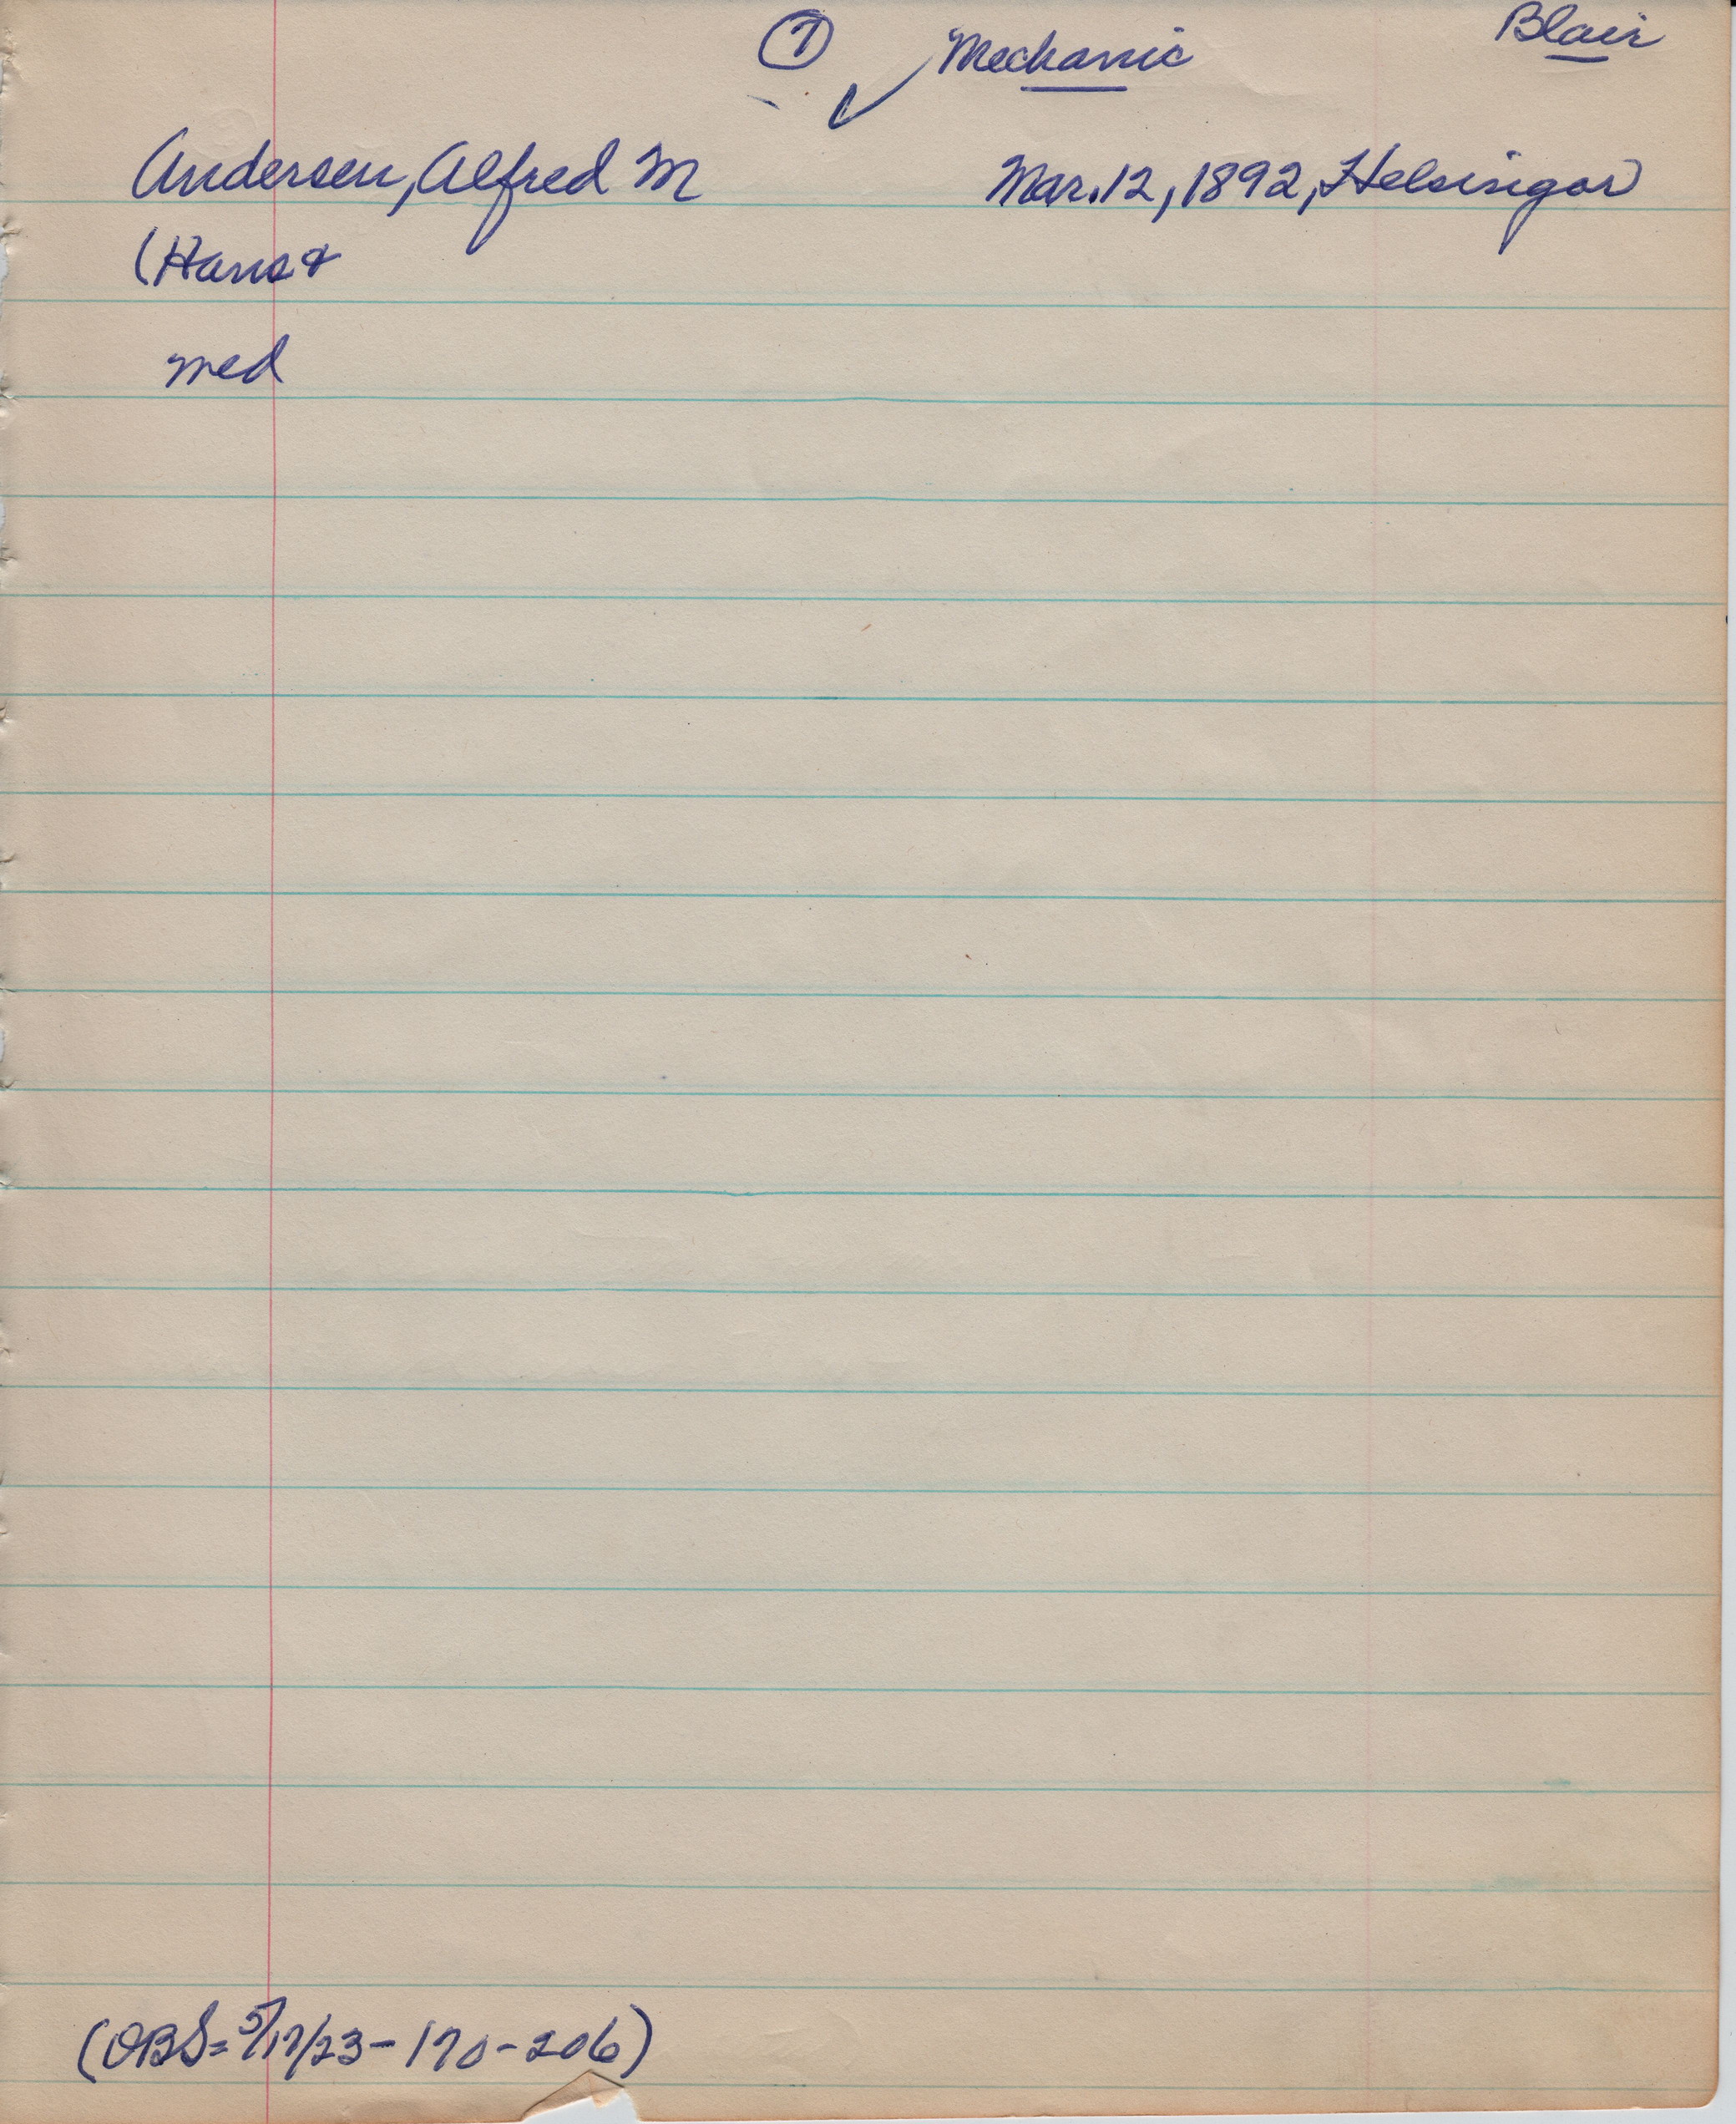 7 Mechanic Blair
Andersen, Alfred M Mar. 12, 1892, Helsingor
(Hans &
med
(OBS= 5/17/23-170-206)